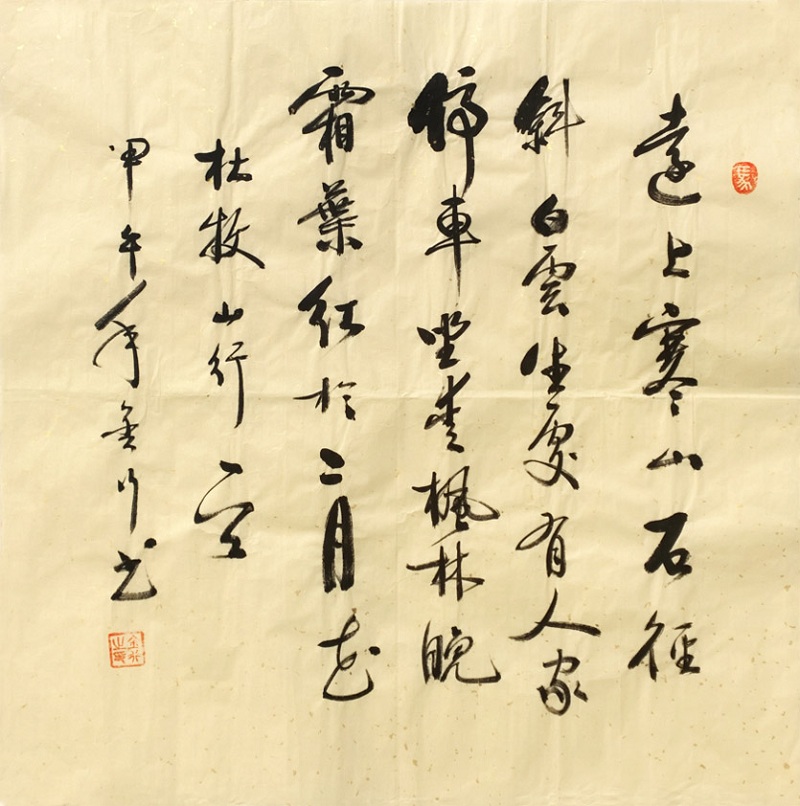 遠上寒山石徑
斜白雲生處有人家
停車坐愛楓林晚
霜葉紅於二月花
杜牧山行一首
甲午年金行書